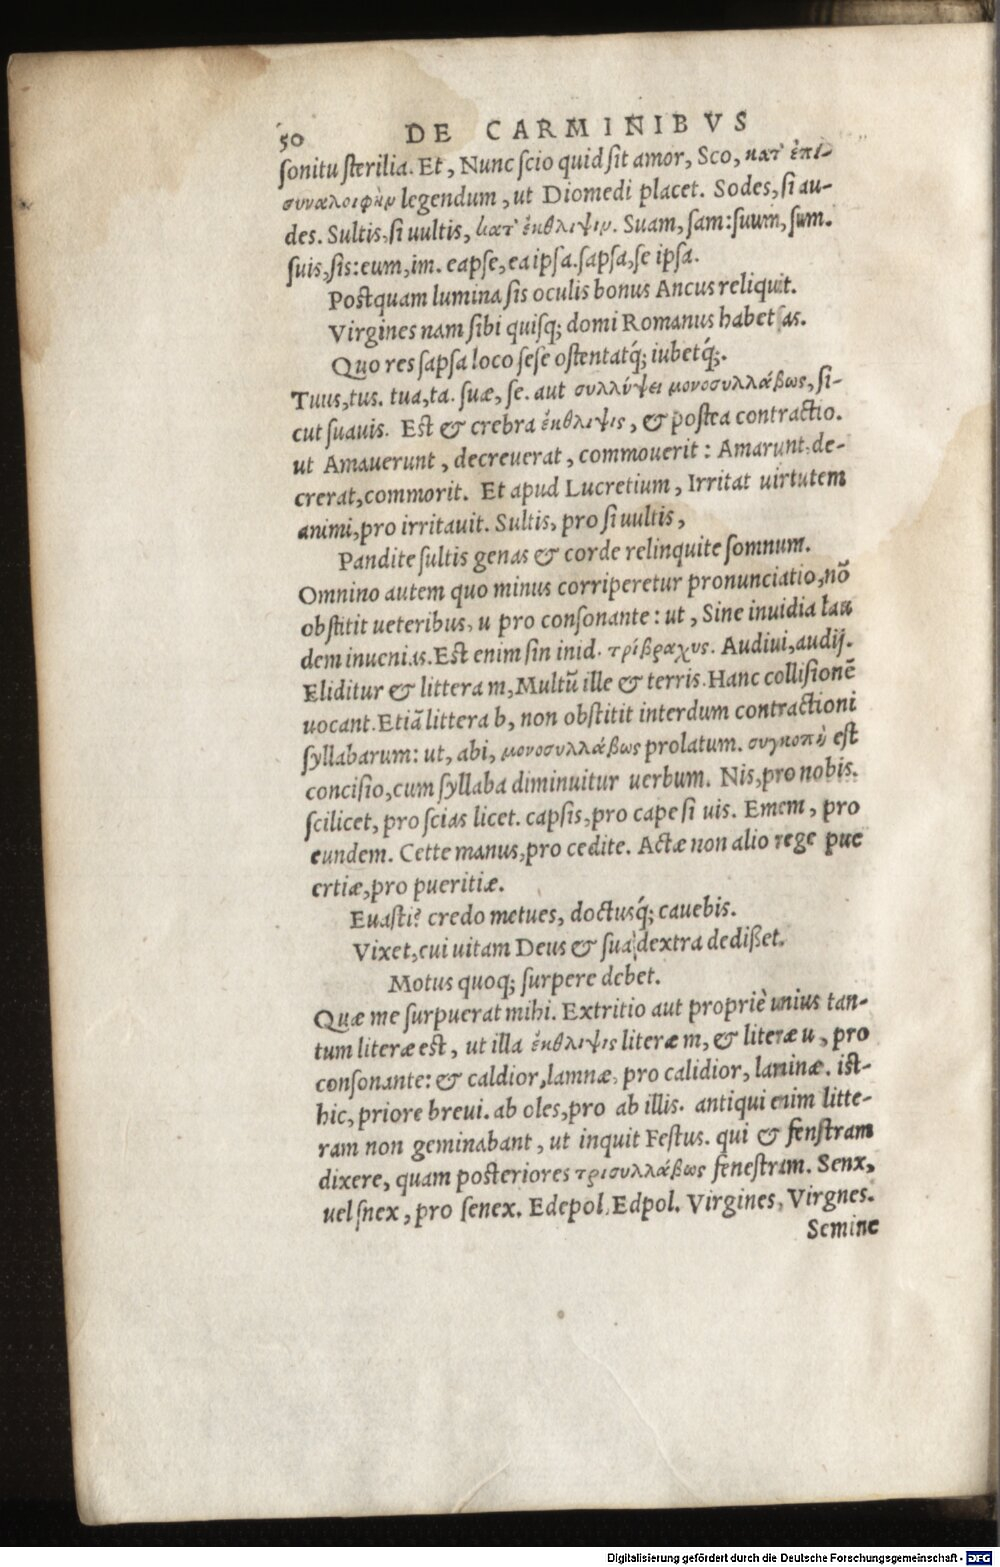 50 DE CARMINIBVS
ſonitu ſterilia. Et, Nunc ſcio quid ſit amor, Sco, κατ' ἐπι-
συναλοιφὴν legendum, ut Diomedi placet. Sodes, ſi au-
des. Sultis, ſi uultis, κατ' ἔκθλιψιν. Suam, ſam: ſuum, ſum.
ſuis, ſis: eum, im. eapſe, ea ipſa. ſapſa, ſe ipſa.
Postquam lumina ſis oculis bonus Ancus reliquit.
Virgines nam ſibi quiſq; domi Romanus habet ſas.
Quo res ſapſa loco ſeſe oſtentatq́; iubetq́;.
Tuus, tus. tua, ta. ſuæ, ſe. aut συλλήψει μονοσυλλάβως, ſi-
cut ſuauis. Est & crebra ἔκθλιψις, & poſtea contractio.
ut Amauerunt, decreuerat, commouerit: Amarunt, de-
crerat, commorit. Et apud Lucretium, Irritat uirtutem
animi, pro irritauit. Sultis, pro ſi uultis,
Pandite ſultis genas & corde relinquite ſomnum.
Omnino autem quo minus corriperetur pronunciatio, nõ
obſtitit ueteribus, u pro conſonante: ut, Sine inuidia lau
dem inuenias. Est enim ſin inid. τρίβραχυς. Audiui, audij.
Eliditur & littera m, Multũ ille & terris. Hanc colliſionẽ
uocant. Etiã littera b, non obſtitit interdum contractioni
ſyllabarum: ut, abi, μονοσυλλάβως prolatum. συγκοπὴ est
conciſio, cum ſyllaba diminuitur uerbum. Nis, pro nobis.
ſcilicet, pro ſcias licet. capſis, pro cape ſi uis. Emem, pro
eundem. Cette manus, pro cedite. Actæ non alio rege pue
ertiæ, pro pueritiæ.
Euaſti? credo metues, doctusq́; cauebis.
Vixet, cui uitam Deus & ſua dextra dedißet.
Motus quoq; ſurpere debet.
Quæ me ſurpuerat mihi. Extritio aut propriè unius tan-
tum literæ est, ut illa ἔκθλιψις literæ m, & literæ u, pro
conſonante: & caldior, lamnæ, pro calidior, laminæ. ist-
hic, priore breui. ab oles, pro ab illis. antiqui enim litte-
ram non geminabant, ut inquit Feſtus. qui & fenſtram
dixere, quam poſteriores τρισυλλάβως feneſtram. Senx,
uel ſnex, pro ſenex. Edepol, Edpol. Virgines, Virgnes.
Semine
Digitalisierung gefördert durch die Deutsche Forschungsgemeinschaft - DFG